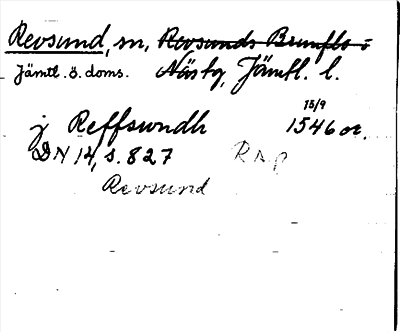 Revsund, sn, Revsunds Brunflo o
Jämtl. ö. doms. Näs tg, Jämtl. l.
15/9
j Reffswndh 1546 or.
DN 14, s. 827 RAP
Revsund